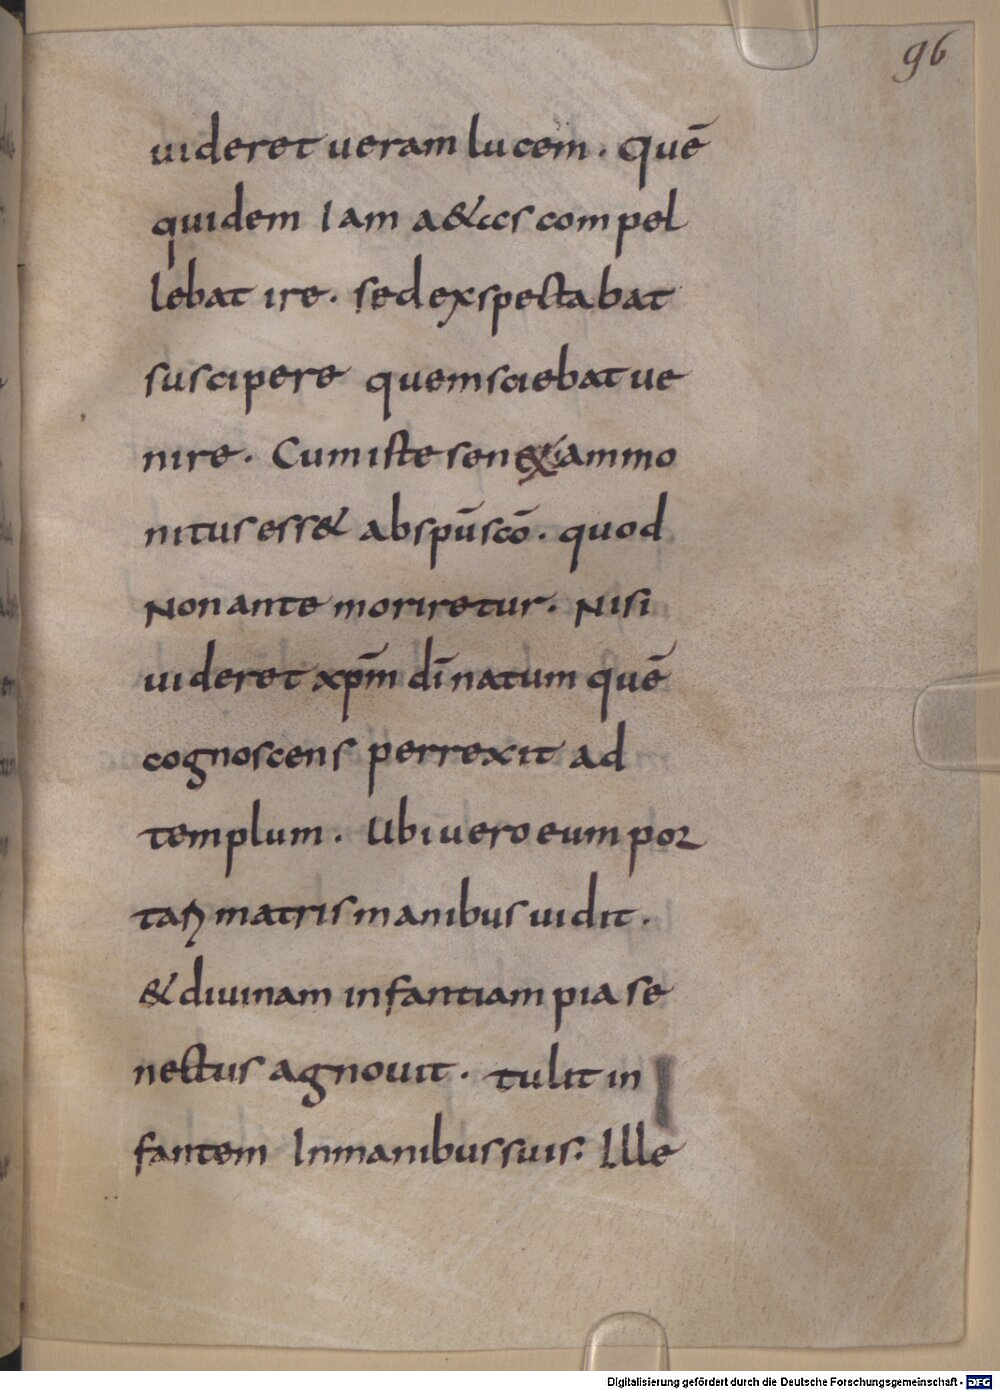 96
uideret ueram lucem. Quē
quidem Iam a&ccs compel
lebat ire. sed exspectabat
suscipere quem sciebat ue
nire. Cum iste senex ammo
nitus ess& ab spū scō. quod
Non ante moriretur. Nisi
uideret xpm̄ dī natum quē
cognoscens perrexit ad
templum. Ubi uero eum por
taꝝ matris manibus uidit.
& diuinam infantiam pia se
nectus agnouit. tulit in
fantem In manibus suis: Ille
Digitalisierung gefördert durch die Deutsche Forschungsgemeinschaft - DFG